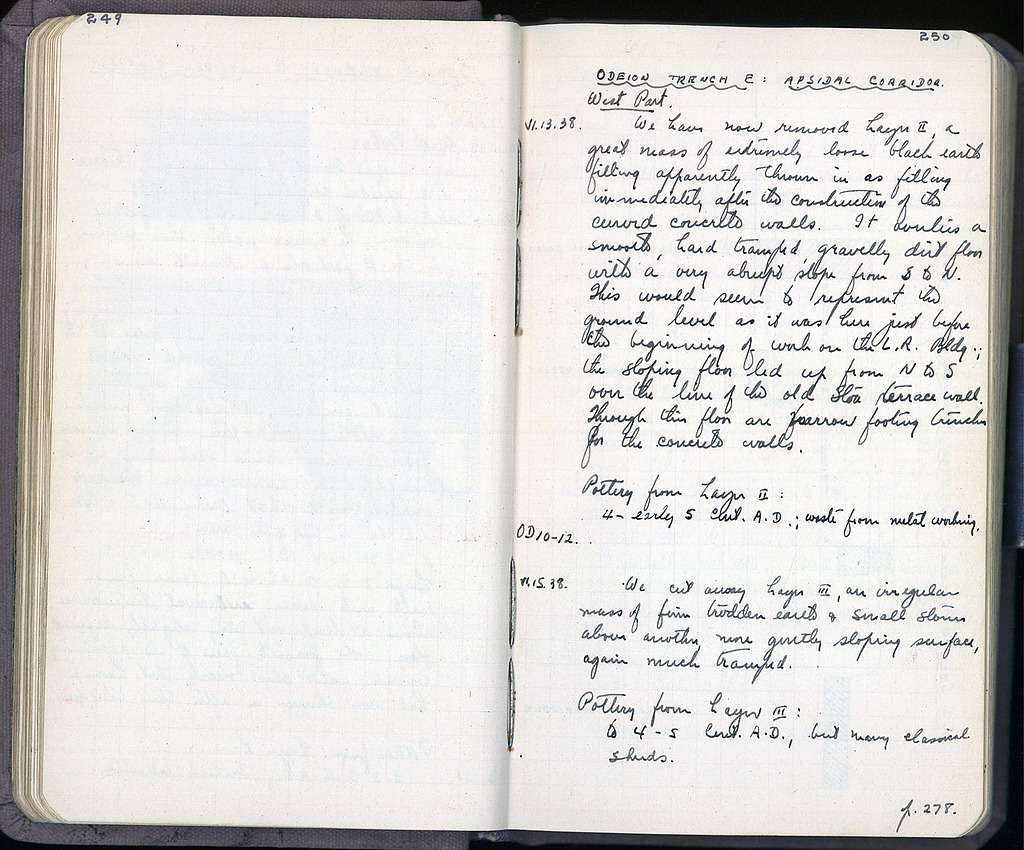 249
250
ODEION TRENCH E: APSIDAL CORRIDOR.
West Part.
VI.13.38. We have now removed Layer II, a
great mass of extremely loose black earth
filling apparently thrown in as filling
immediately after the construction of the
curved concrete walls. It overlies a
smooth, hard tramped, gravelly dirt floor
with a very abrupt slope from S to N.
This would seem to represent the
ground level as it was here just before
the beginning of work on the L.R. Bldg.;
the sloping floor led up from N to S
over the line of the old Stoa terrace wall.
Through this floor are narrow footing trenches
for the concrete walls.
Pottery from Layer II:
4 - early 5 Cent. A.D.; waste from metal working.
OD10-12.
VI.15.38. We cut away Layer III, an irregular
mass of firm trodden earth & small stones
above another, more gently sloping surface,
again much tramped.
Pottery from Layer III:
to 4-5 Cent. A.D., but many classical
sherds.
p. 278.